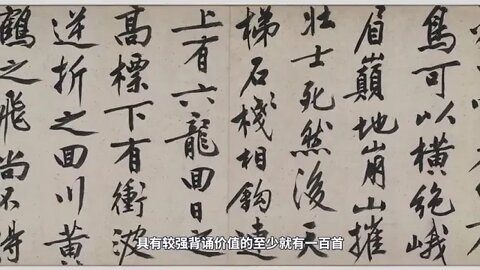 鳥可以橫絕峨
眉巔地崩山摧
壯士死然後天
梯石棧相鉤連
上有六龍回日之
高標下有衝波
逆折之回川黃
鶴之飛尚不得
具有较强背诵价值的至少就有一百首